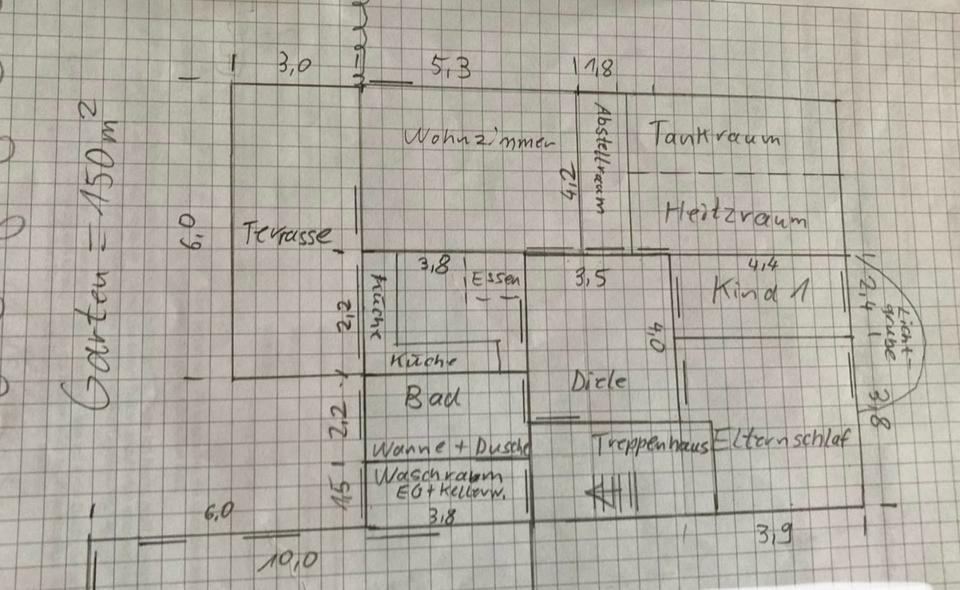 3,0
5,3
1,8
Garten = 150m²
6,0
Terrasse
Wohnzimmer
4,2
Abstellraum
Tankraum
Heitzraum
3,8
Essen
Küche
Küche
2,2
3,5
4,0
Diele
4,4
Kind 1
2,4
Licht-
grube
3,8
Bad
Wanne + Dusche
2,2
Treppenhaus
Elternschlaf
Waschraum
EG + Kellerw.
1,5
3,8
6,0
10,0
3,9